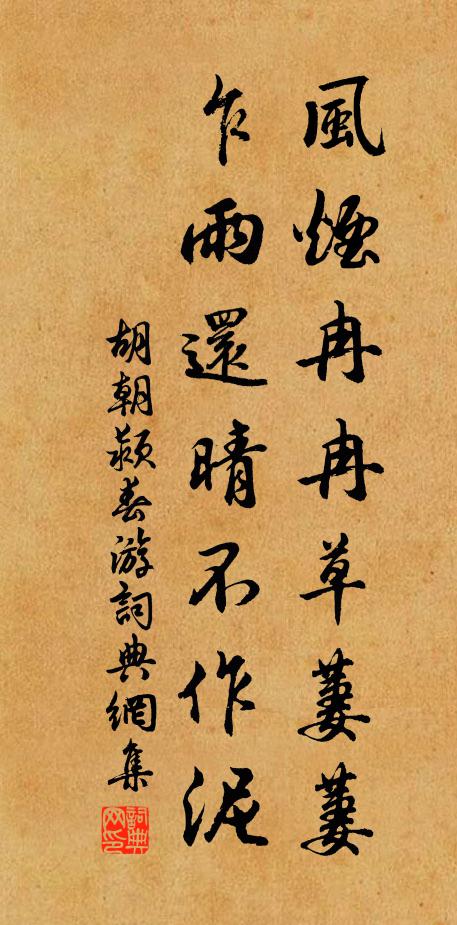 風煙冉冉草萋萋
乍雨還晴不作泥
胡朝穎春游詞典網集
詞典网印